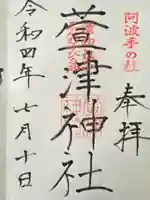 阿波手の杜
奉拝
萱津神社
令和四年七月十日